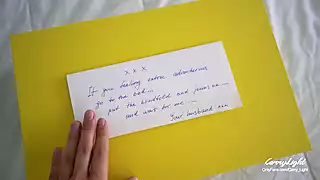 x x x
If you feeling extra adventurous
go to the bed...
put the blindfold and
and wait for me
Your husband
CarryLight
OnlyFans.com/Carry_Light